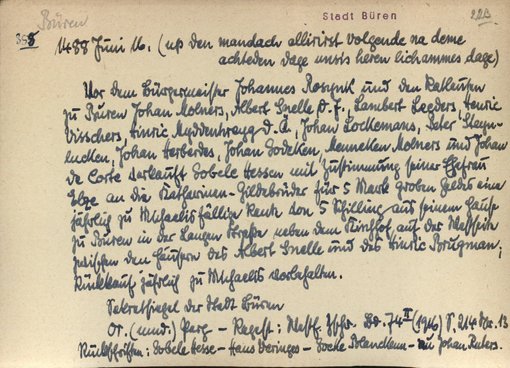 Büren
Stadt Büren
22B
385
1488 Juni 16. (up den mandach allirirst volgende na deme
achteden dage unsis heren lichammes dage)
Vor dem Bürgermeister Johannes Rosynk und den Ratleuten
zu Büren Johan Molners, Albert Snelle d. J., Lambert Leeders, Henric
Visschers, Hinric Myddentwag d. A., Johan Lockemans, Peter
Johan Herberdes, Johan Godeken, Menneken Molners und Johan
de Corte verkauft Gobele Hessen mit Zustimmung seiner Ehefrau
Ilge an die Katharinen-Gildebrüder für 5 Mark groben Geldes eine
jährlich zu Michaelis fällige Rente von 5 Schilling aus seinem Haus
zu Büren in der Langen Straße neben dem auf der Westseite
zwischen den Häusern des Albert Snelle und des Hinric Brugman;
Rückkauf jährlich zu Michaelis vorbehalten.
Sekretsiegel der Stadt Büren
Or. (mnd.) Perg – Regest: Westf. Ztschr. Bd. 74 II (1916) S. 214 Nr. 13
Rückschriften: Gobele Hesse – Hans Deringes – Goeke – nu Johan